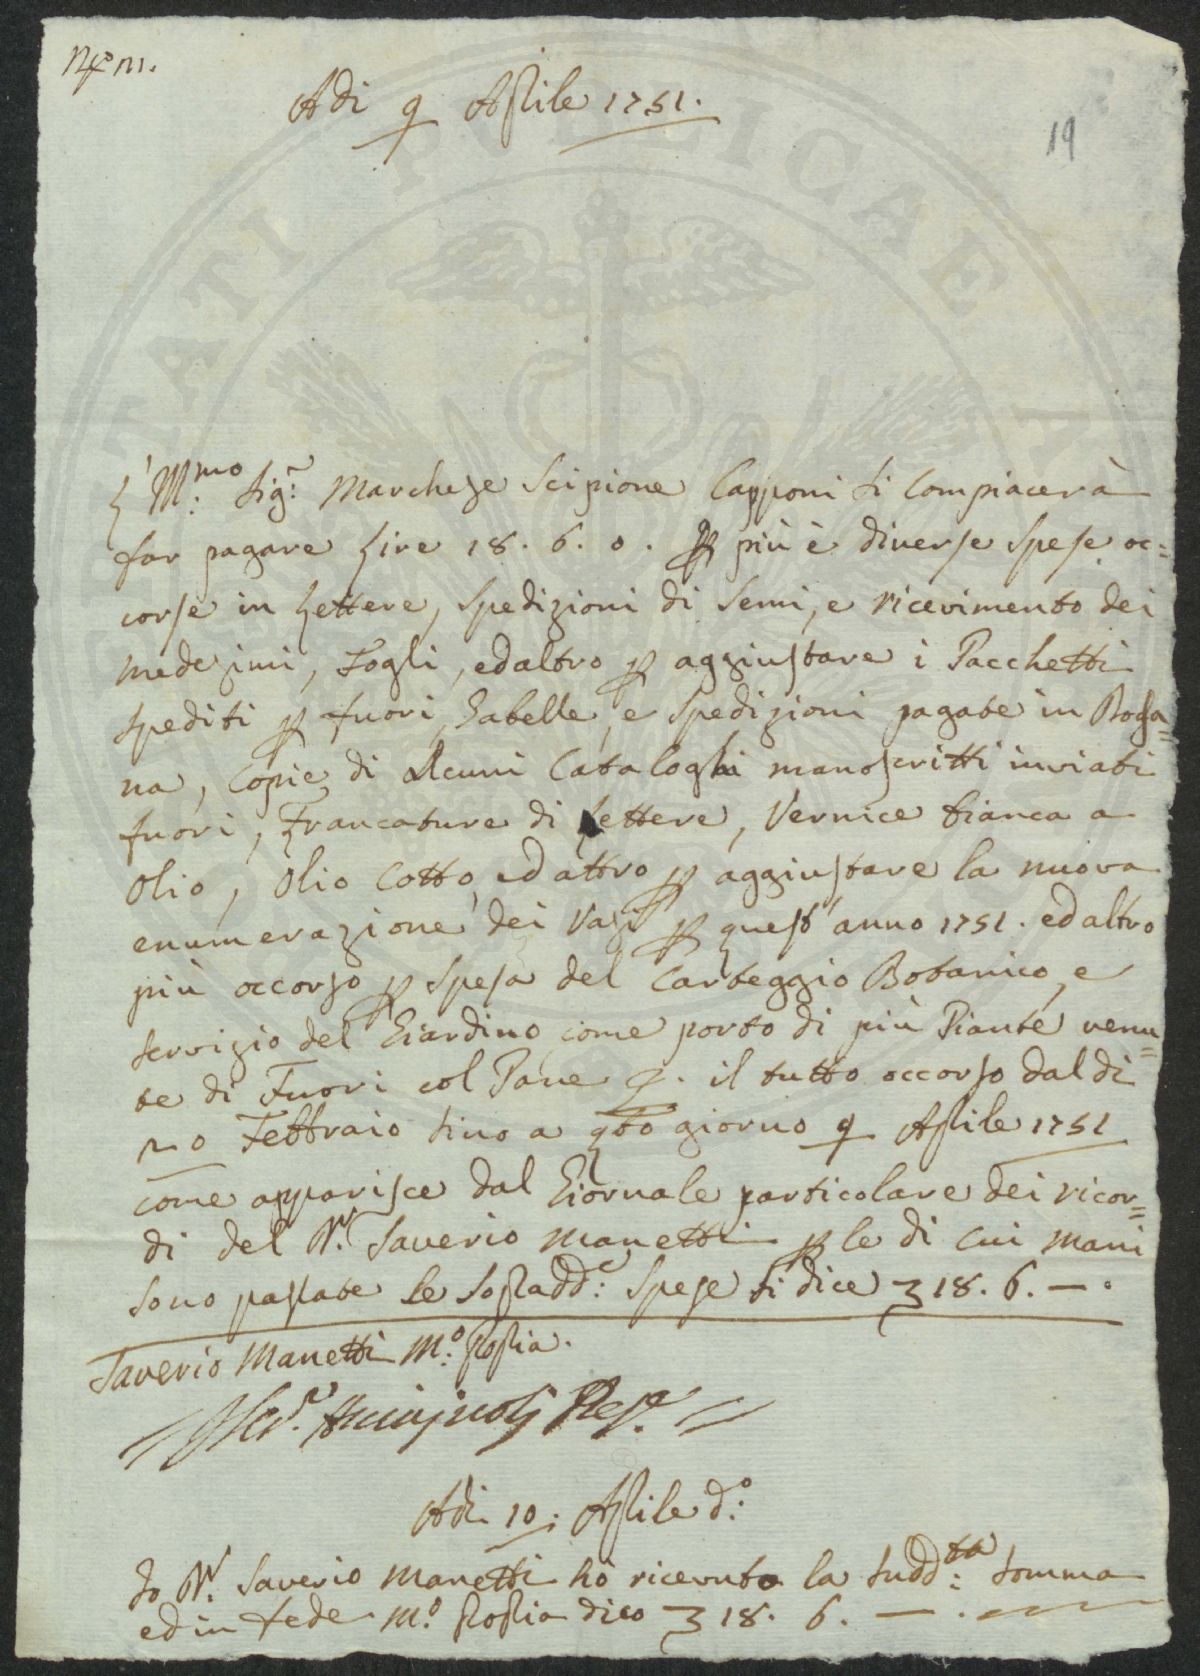 Adi 9 Aprile 1751.
19
L'Ill.mo Sig.r Marchese Scipione Capponi si compiacerà
far pagare Lire 18. 6. 0. p più e diverse spese oc=
corse in Lettere, spedizioni di semi, e ricevimento dei
medesimi, Fogli, ed altro p aggiustare i Pacchetti
spediti p fuori, Gabelle, e spedizioni pagate in Doga=
na, Copie di alcuni Cataloghi manoscritti inviati
fuori, Francature di Lettere, Vernice bianca a
olio, olio cotto, ed altro p aggiustare la nuova
enumerazione dei Vasi p quest'anno 1751. ed altro
più occorso p spesa del Carteggio Botanico, e
servizio del Giardino, come porto di più Piante venu=
te di Fuori col Pane &. il tutto occorso dal di
20 Febbraio sino a qto giorno 9 Aprile 1751
come apparisce dal Giornale particolare dei ricor=
di del Dr. Saverio Manetti p le di cui mani
sono passate le sopradd.e spese si dice 18. 6. —.
Saverio Manetti M.o Propria.
Adi 10. Aprile d.o
Io Dr. Saverio Manetti hò ricevuto la sudd.ta somma
ed in fede M.o Propria dico 18. 6. —.